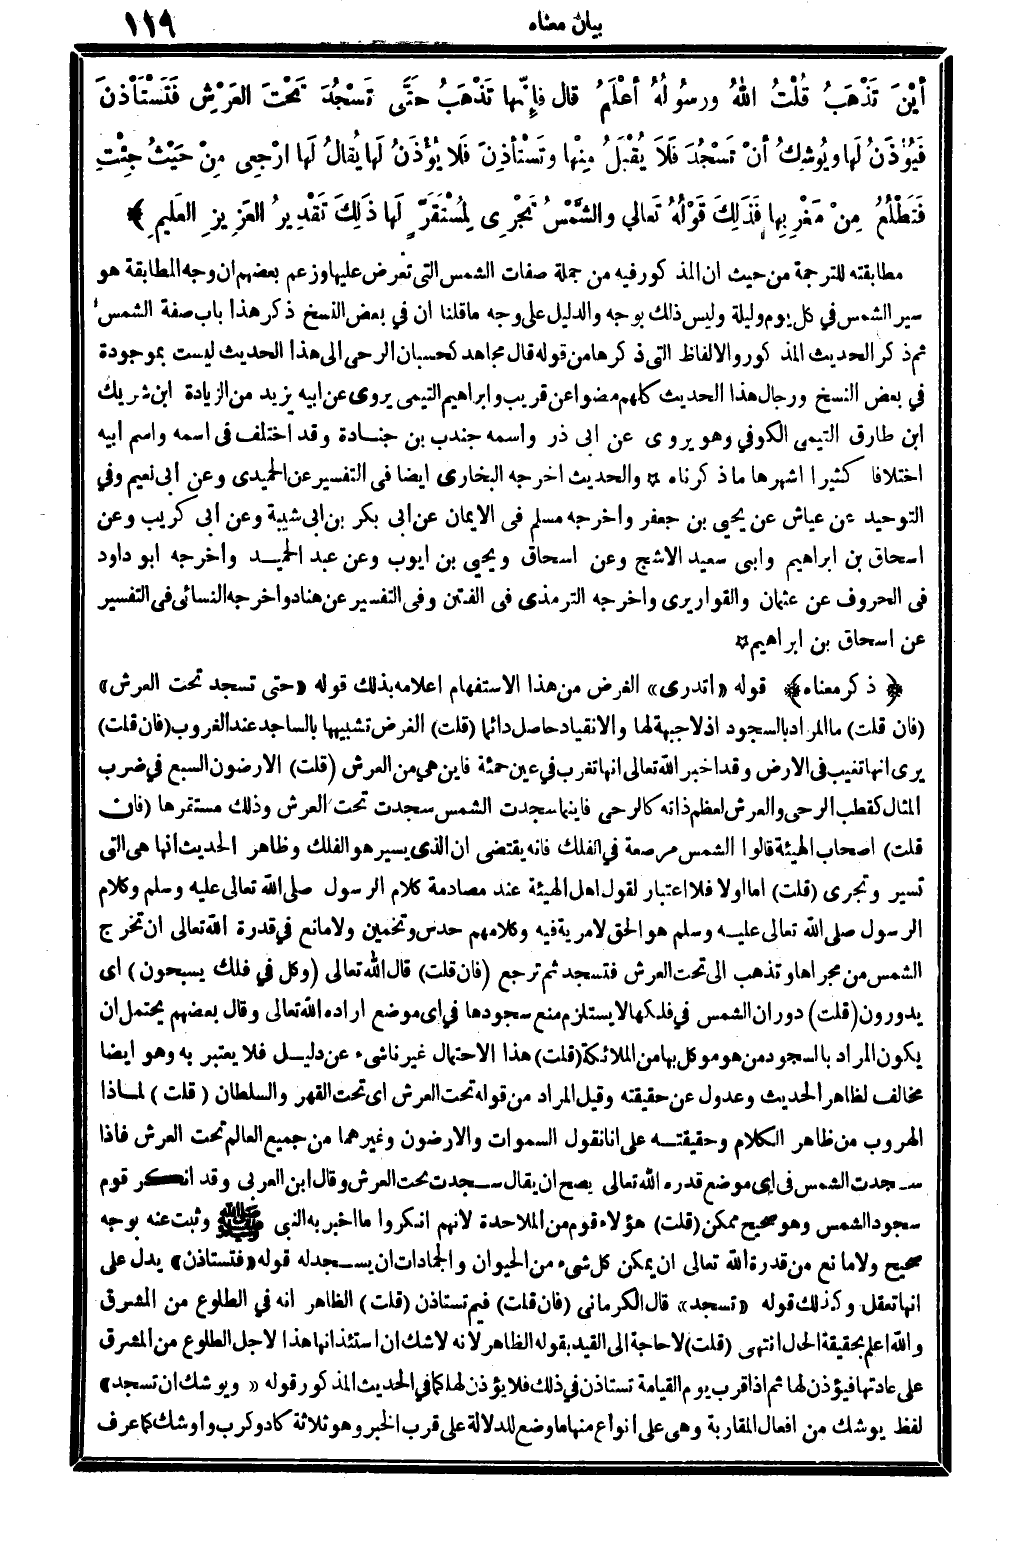 بيان معناه ١١٩
أَيْنَ تَذْهَبُ قُلْتُ اللهُ ورسُولُهُ أعْلَمُ قال فإِنَّها تَذْهَبُ حَتَّى تَسْجُدَ تَحْتَ العَرْشِ فَتَسْتَأْذِنَ
فَيُؤْذَنُ لَها ويُوشِكُ أنْ تَسْجُدَ فَلاَ يُقْبَلُ مِنْها وتَسْتأذِنَ فَلا يُؤْذَنُ لَها يُقالُ لَها ارْجِعِى مِنْ حَيْثُ جِئْتِ
فَتَطْلُعُ مِنْ مَغْرِبِها فَذَلِكَ قَوْلُهُ تَعالي والشَّمْسُ تَجْرِى لِمُسْتَقَرٍّ لَها ذَلِكَ تَقْدِيرُ العَزِيزِ العَلِيمِ ﴾
مطابقته للترجمة من حيث ان المذكور فيه من جملة صفات الشمس التى تعرض عليها وزعم بعضهم ان وجه المطابقة هو
سير الشمس في كل يوم وليلة وليس ذلك بوجه والدليل على وجه ما قلنا ان في بعض النسخ ذكر هذا باب صفة الشمس
ثم ذكر الحديث المذكور والالفاظ التى ذكرها من قوله قال مجاهد كحسبان الرحى الى هذا الحديث ليست بموجودة
في بعض النسخ ورجال هذا الحديث كلهم مضوا عن قريب وابراهيم التيمى يروى عن ابيه يزيد من الزيادة ابن شريك
ابن طارق التيمى الكوفي وهو يروى عن ابى ذر واسمه جندب بن جنادة وقد اختلف فى اسمه واسم أبيه
اختلافا كثيرا اشهرها ما ذكرناه ٭ والحديث اخرجه البخارى ايضا فى التفسير عن الحميدى وعن أبى نعيم وفي
التوحيد عن عياش عن يحيى بن جعفر وأخرجه مسلم فى الايمان عن أبى بكر بن ابى شيبة وعن أبى كريب وعن
اسحاق بن ابراهيم وابى سعيد الاشج وعن اسحاق ويحيى بن ايوب وعن عبد الحميد وأخرجه ابو داود
فى الحروف عن عثمان والقواريرى واخرجه الترمذى فى الفتن وفى التفسير عن هناد واخرجه النسائى فى التفسير
عن اسحاق بن ابراهيم ٭
﴿ ذكر معناه ﴾ قوله «اتدرى» الغرض من هذا الاستفهام اعلامه بذلك قوله «حتى تسجد تحت العرش»
(فان قلت) ما المراد بالسجود اذ لا جبهة لها والانقياد حاصل دائما (قلت) الغرض تشبيهها بالساجد عند الغروب (فان قلت)
يرى انها تغيب فى الارض وقد اخبر الله تعالى انها تغرب في عين حمئة فاين هي من العرش (قلت) الارضون السبع في ضرب
المثال كقطب الرحى والعرش لعظم ذاته كالرحى فاينما سجدت الشمس سجدت تحت العرش وذلك مستقرها (فان
قلت) اصحاب الهيئة قالوا الشمس مرصعة في الفلك فانه يقتضى ان الذى يسير هو الفلك وظاهر الحديث انها هى التى
تسير وتجرى (قلت) اما اولا فلا اعتبار لقول اهل الهيئة عند مصادمة كلام الرسول صلى الله تعالى عليه وسلم وكلام
الرسول صلى الله تعالى عليه وسلم هو الحق لا مرية فيه وكلامهم حدس وتخمين ولا مانع في قدرة الله تعالى ان تخرج
الشمس من مجراها وتذهب الى تحت العرش فتسجد ثم ترجع (فان قلت) قال الله تعالى (وكل في فلك يسبحون) اى
يدورون (قلت) دوران الشمس في فلكها لا يستلزم منع سجودها في اى موضع اراده الله تعالى وقال بعضهم يحتمل ان
يكون المراد بالسجود من هو موكل بها من الملائكة (قلت) هذا الاحتمال غير ناشىء عن دليل فلا يعتبر به وهو ايضا
مخالف لظاهر الحديث وعدول عن حقيقته وقيل المراد من قوله تحت العرش اى تحت القهر والسلطان ( قلت ) لماذا
الهروب من ظاهر الكلام وحقيقته على انا نقول السموات والارضون وغيرهما من جميع العالم تحت العرش فاذا
سجدت الشمس فى اى موضع قدره الله تعالى يصح ان يقال سجدت تحت العرش وقال ابن العربى وقد انكر قوم
سجود الشمس وهو صحيح ممكن (قلت) هؤلاء قوم من الملاحدة لانهم انكروا ما اخبر به النبى ﷺ وثبت عنه بوجه
صحيح ولا مانع من قدرة الله تعالى ان يمكن كل شىء من الحيوان والجمادات ان يسجد له قوله «فتستاذن» يدل على
انها تعقل وكذلك قوله «تسجد» قال الكرمانى (فان قلت) فيم تستاذن (قلت) الظاهر انه في الطلوع من المشرق
والله اعلم بحقيقة الحال انتهى (قلت) لا حاجة الى القيد بقوله الظاهر لانه لا شك ان استئذانها هذا لاجل الطلوع من المشرق
على عادتها فيؤذن لها ثم اذا قرب يوم القيامة تستاذن في ذلك فلا يؤذن لها كما في الحديث المذكور قوله « ويوشك ان تسجد»
لفظ يوشك من افعال المقاربة وهى على أنواع منها ما وضع للدلالة على قرب الخبر وهو ثلاثة كاد وكرب واوشك كما عرف